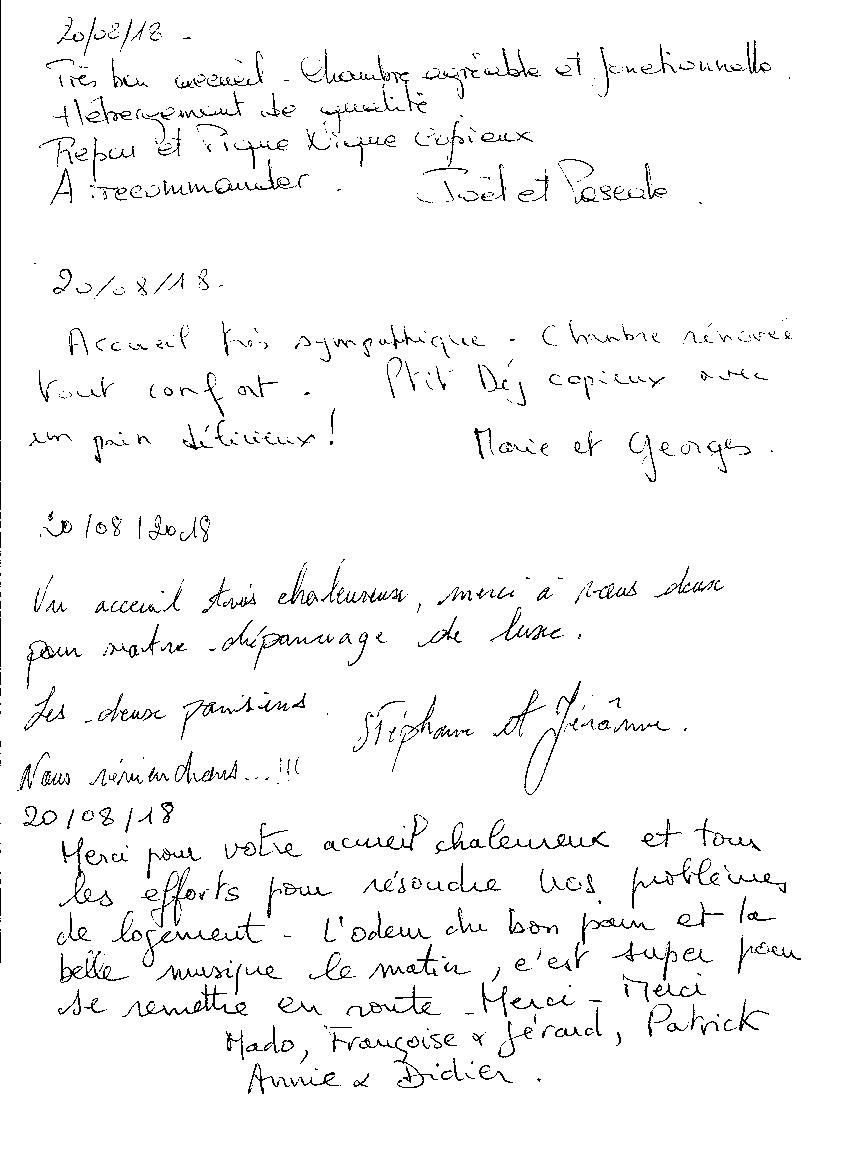 20/08/18 -
Très bon accueil - Chambre agréable et fonctionnelle.
Hébergement de qualité
Repas et Pique Nique Copieux
A recommander. Joël et Pascale.
20/08/18.
Accueil très sympathique - Chambre rénovée
tout confort. Ptit Déj copieux avec
un pain délicieux! Marie et Georges.
20/08/2018
Un acceuil très chaleureux, merci à vous deux
pour notre dépannage de luxe.
Les deux parisiens. Stéphane et Jérôme.
Nous reviendrons...!!!
20/08/18
Merci pour votre accueil chaleureux et tous
les efforts pour résoudre nos problèmes
de logement - L'odeur du bon pain et la
belle musique le matin, c'est super pour
se remettre en route - Merci - Merci
Mado, Françoise & Gérard, Patrick
Annie & Didier.